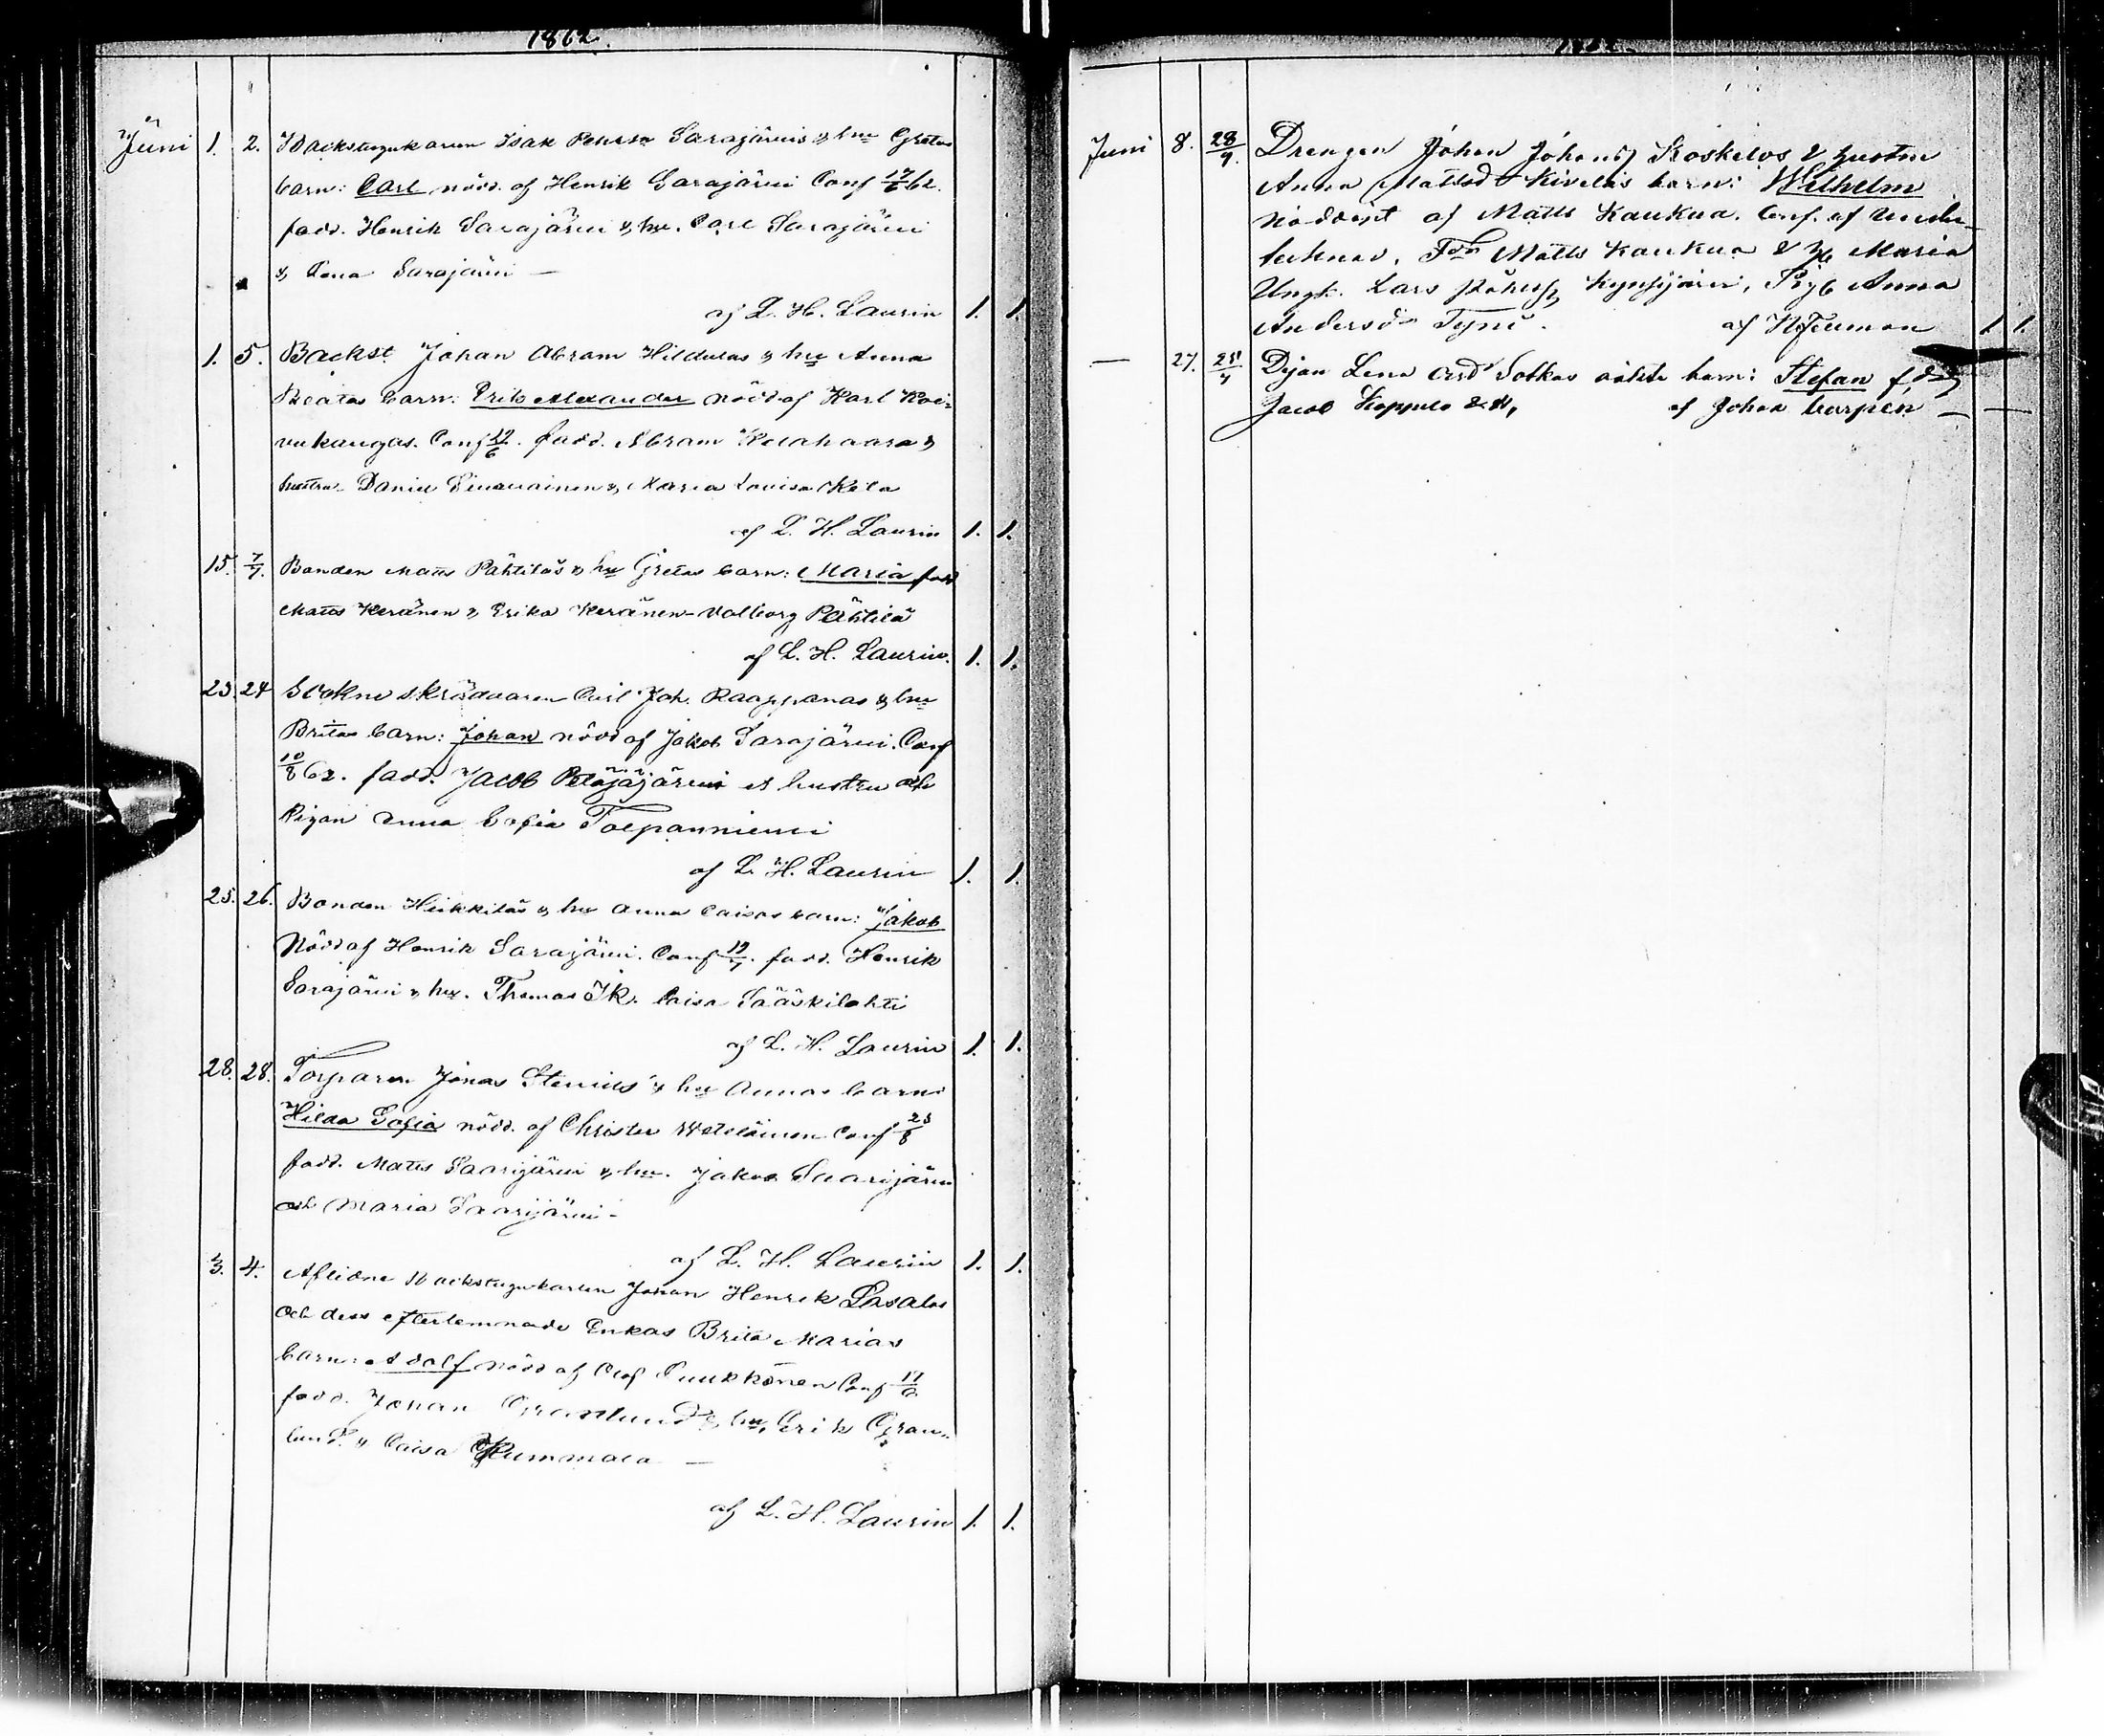 1862.
Juni 1. 2. Backstugukaren Isak Sarajärvis & hu Gretas
barn: Carl nödd. af Henrik Sarajärvi Conf 17/6 62.
fadd. Henrik Sarajärvi & hu. Carl Sarajärvi
& Lena Sarajärvi —
af L. H. Laurin 1. 1.
1. 5. Backst. Johan Abram & hu Anna
Beatas barn: Erik Alexander nödd af Karl Koi-
vukangas. Conf fadd. Abram &
hustru Daniel & Maria Lovisa Kela
af L. H. Laurin 1. 1.
15. 7/7. Bonden Matts Pähtiläs & hu Gretas barn: Maria fadd
Matts Keränen & Erika Keränen - Valborg Pähtilä
af L. H. Laurin. 1. 1.
23. 24 Sockne skräddaren Carl Joh. Raappanas & hu
Britas barn: Johan nödd af Jakob Sarajärvi. Conf
10/8 62. fadd. Jacob Petäjäjärvi & hustru och
Pigan Anna Sofia Torpanniemi
af L. H. Laurin 1. 1.
25. 26. Bonden Heikkiläs & hu Anna Caisas barn: Jakob
Nödd af Henrik Sarajärvi. Conf fadd. Henrik
Sarajärvi & hu. Thomas Caisa Sääskilahti
af L. H. Laurin 1. 1.
28. 28. Torparen Jonas & hu Annas barn
Hilda Sofia nödd. af Christer Conf
fadd. Matts Saarijärvi & hu. Jakob Saarijärvi
och Maria Saarijärvi -
af L. H. Laurin 1. 1.
3. 4. Aflidne Backstugukarlen Johan Henrik Lasalas
och dess efterlemnade Enkas Brita Marias
barn: Adolf nödd af Olof Puukkonen Conf
fadd. Johan Granlund & hu, Erik Gran-
lund & Caisa Kummala —
af L. H. Laurin 1. 1.
1862.
Juni 8. 28/9. Drengen Johan Johans Koskelos & hustru
Anna Mattsd Kiveläs barn: Wilhelm
nöddöpt af Matts Kaukua. Conf. af under-
tecknad. Matts Kaukua & Maria
Ungk. Lars Kynsijärvi, Pig. Anna
Andersd Tyni. af 1. 1.
— 27. Pigan Lena Sotkas oäkta barn: Stefan
Jacob & H, af Johan Carpén — —